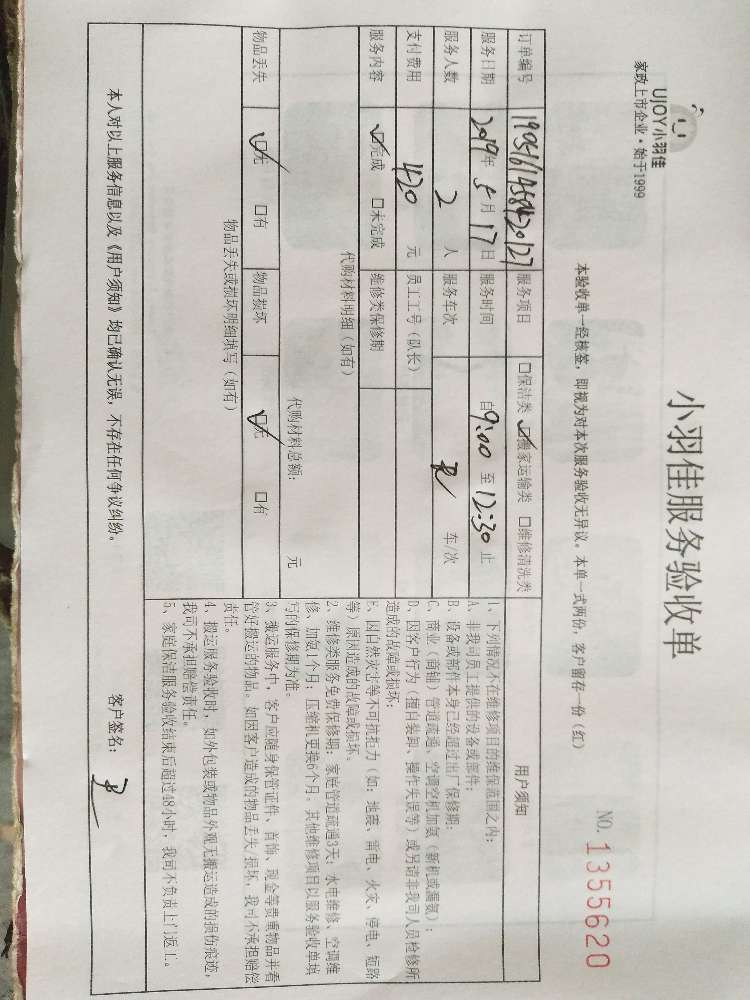 UJOY小羽佳
家政上市企业·始于1999
小羽佳服务验收单
NO. 1355620
本验收单一经核签，即视为对本次服务验收无异议。本单一式两份，客户留存一份（红）
订单编号 1905161458420127 服务项目 □保洁类 ☑搬家运输类 □维修清洗类
服务日期 2019年5月17日 服务时间 自9:00至12:30止
服务人数 2人 服务车次 车/次
支付费用 420元 员工工号（队长）
服务内容 ☑完成 □未完成 维修类保修期
代购材料明细（如有）
代购材料总额： 元
物品丢失 ☑无 □有 物品损坏 ☑无 □有
物品丢失或损坏明细填写（如有）
用户须知
1、下列情况不在维修项目的维保范围之内：
A、非我司员工提供的设备或部件；
B、设备或部件本身已经超过出厂保修期；
C、商业（商铺）管道疏通、空调空机加氨（新机或漏氨）；
D、因客户行为（擅自装卸、操作失误等）或另请非我司人员检修所
造成的故障或损坏；
E、因自然灾害等不可抗拒力（如：地震、雷电、火灾、停电、短路
等）原因造成的故障或损坏。
2、维修类服务免费保修期：家庭管道疏通3天；水电维修、空调维
修、加氨1个月；压缩机更换6个月。其他维修项目以服务验收单填
写的保修期为准。
3、搬运服务中，客户应随身保管证件、首饰、现金等贵重物品并看
管好搬运的物品。如因客户造成的物品丢失、损坏，我司不承担赔偿
责任。
4、搬运服务验收时，如外包装或物品外观无搬运造成的损伤痕迹，
我司不承担赔偿责任。
5、家庭保洁服务验收结束后超过48小时，我司不负责上门返工。
本人对以上服务信息以及《用户须知》均已确认无误，不存在任何争议纠纷。 客户签名：